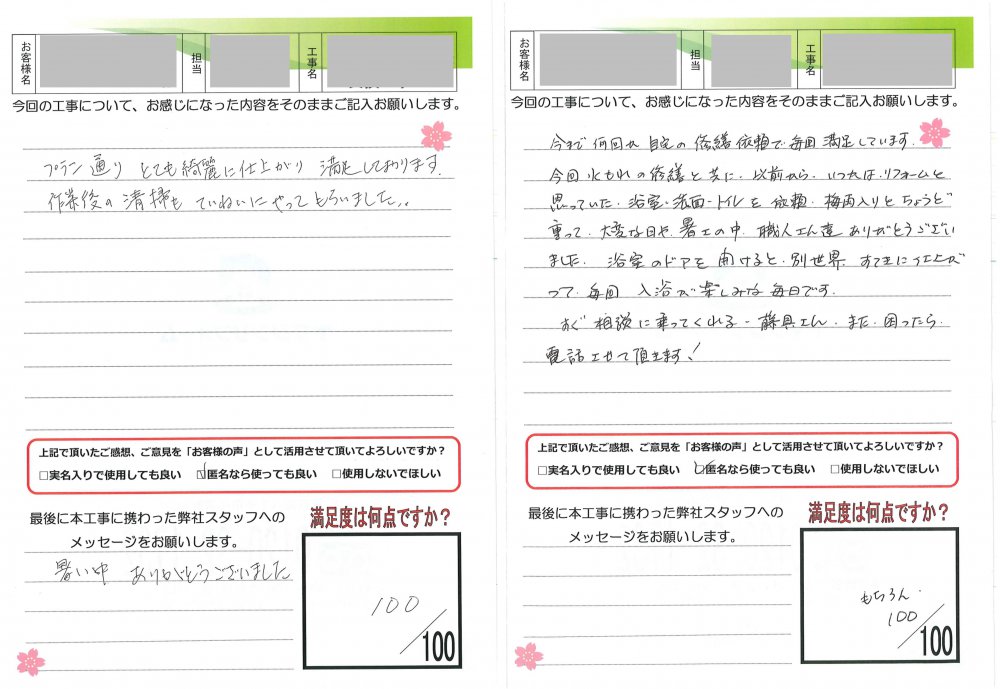 お客様名
担当
工事名
今回の工事について、お感じになった内容をそのままご記入お願いします。
プラン通り とても綺麗に仕上がり 満足しております。
作業後の清掃も ていねいにやってもらいました。
上記で頂いたご感想、ご意見を「お客様の声」として活用させて頂いてよろしいですか？
□実名入りで使用しても良い ☑匿名なら使っても良い □使用しないでほしい
最後に本工事に携わった弊社スタッフへの
メッセージをお願いします。
暑い中 ありがとうございました
満足度は何点ですか？
100
/100
お客様名
担当
工事名
今回の工事について、お感じになった内容をそのままご記入お願いします。
今まで何回か 自宅の修繕依頼で毎回満足しています。
今回水もれの修繕と共に、以前から、いつかは、リフォームと
思っていた、浴室・洗面・トイレを依頼、梅雨入りとちょうど
重って、大変な日や、暑さの中、職人さん達ありがとうござい
ました。 浴室のドアを開けると、別世界、すてきに仕上が
って、毎回 入浴が楽しみな毎日です。
すぐ相談に乗ってくれる、藤具さん、また、困ったら、
電話させて頂きます！
上記で頂いたご感想、ご意見を「お客様の声」として活用させて頂いてよろしいですか？
□実名入りで使用しても良い ☑匿名なら使っても良い □使用しないでほしい
最後に本工事に携わった弊社スタッフへの
メッセージをお願いします。
満足度は何点ですか？
もちろん
100
/100